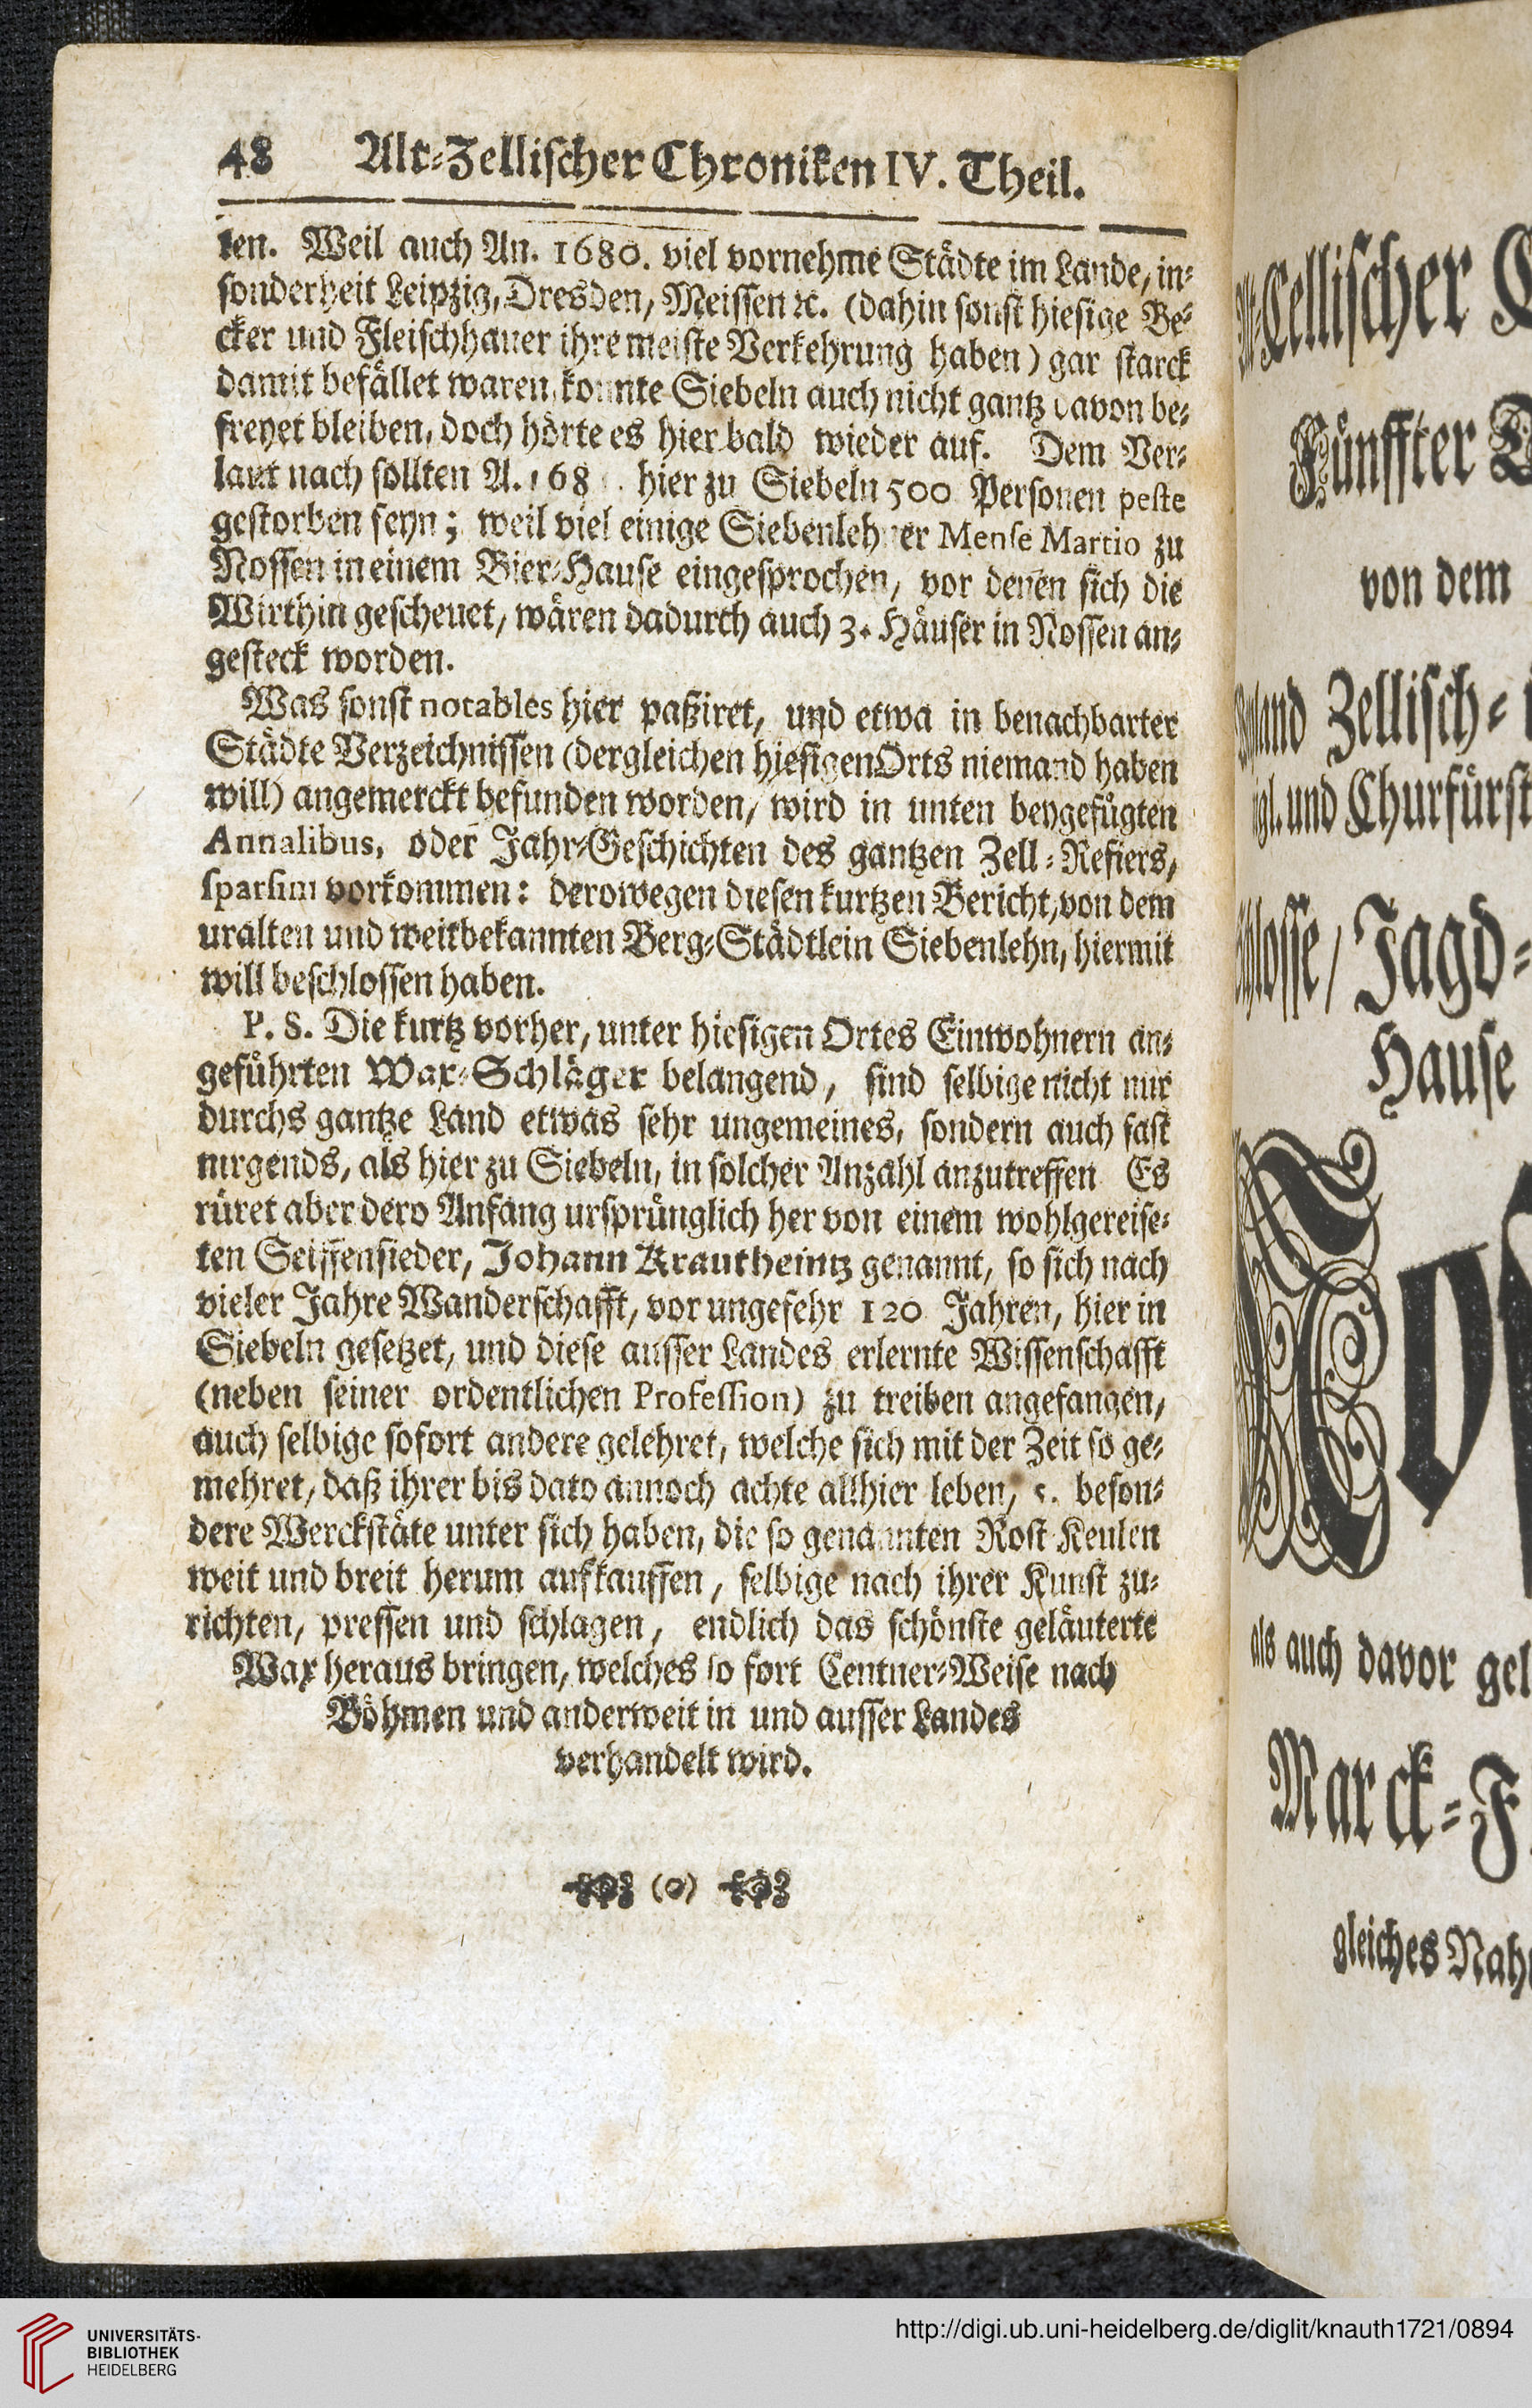 48 Alt-Zellischer Chroniken IV. Theil.
ten. Weil auch An. 1680. viel vornehme Städte im Lande, in-
sonderheit Leipzig, Dresden, Meissen ꝛc. (dahin sonst hiesige Be-
cker und Fleischhauer ihre meiste Verkehrung haben) gar starck
damit befället waren, konnte Siebeln auch nicht gantz davon be-
freyet bleiben, doch hörte es hier bald wieder auf. Dem Ver-
laut nach sollten A. 168 . hier zu Siebeln 500 Personen peste
gestorben seyn; weil viel einige Siebenlehner Mense Martio zu
Nossen in einem Bier-Hause eingesprochen, vor denen sich die
Wirthin gescheuet, wären dadurch auch 3. Häuser in Nossen an-
gesteck worden.
Was sonst notables hier paßiret, und etwa in benachbarter
Städte Verzeichnissen (dergleichen hiesigen Orts niemand haben
will) angemerckt befunden worden, wird in unten beygefügten
Annalibus, oder Jahr-Geschichten des gantzen Zell-Refiers,
sparsim vorkommen: derowegen diesen kurtzen Bericht, von dem
uralten und weitbekannten Berg-Städtlein Siebenlehn, hiermit
will beschlossen haben.
P. S. Die kurtz vorher, unter hiesigen Ortes Einwohnern an-
geführten Wax-Schläger belangend, sind selbige nicht nur
durchs gantze Land etwas sehr ungemeines, sondern auch fast
nirgends, als hier zu Siebeln, in solcher Anzahl anzutreffen Es
rüret aber dero Anfang ursprünglich her von einem wohlgereise-
ten Seiffensieder, Johann Krautheintz genannt, so sich nach
vieler Jahre Wanderschafft, vor ungefehr 120 Jahren, hier in
Siebeln gesetzet, und diese ausser Landes erlernte Wissenschafft
(neben seiner ordentlichen Profession) zu treiben angefangen,
auch selbige sofort andere gelehret, welche sich mit der Zeit so ge-
mehret, daß ihrer bis dato annoch achte allhier leben, beson-
dere Werckstäte unter sich haben, die so genannten Rost Keulen
weit und breit herum aufkauffen, selbige nach ihrer Kunst zu-
richten, pressen und schlagen, endlich das schönste geläuterte
Wax heraus bringen, welches so fort Centner-Weise nach
Böhmen und anderweit in und ausser Landes
verhandelt wird.
(o)
Cellischer C
Fünffter
von dem
Zellisch-
und Churfürst
Jagd-
Hause
Cop
als auch davor gel
Marck-F
gleiches Nah
UNIVERSITÄTS-
BIBLIOTHEK
HEIDELBERG
http://digi.ub.uni-heidelberg.de/diglit/knauth1721/0894